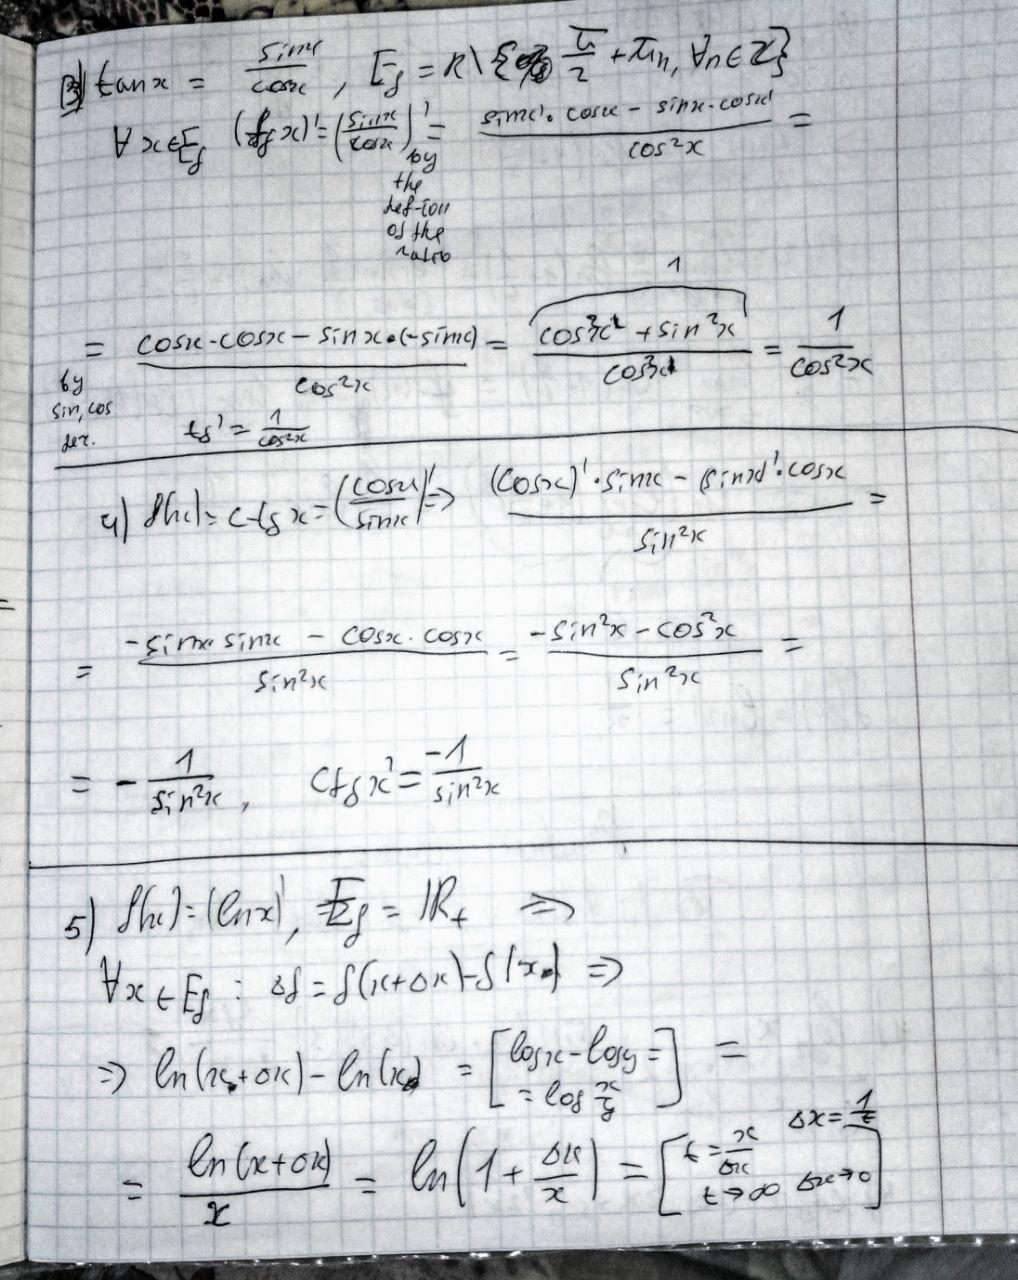 3) tanx = sinx/cosx, E_f = R\{π/2 + πn, ∀n∈Z}
∀x∈E_f (tg x)' = (sinx/cosx)' = (sinx'·cosx - sinx·cosx')/cos²x =
by
the
def-ion
of the
ratio
1
= (cosx·cosx - sinx·(-sinx))/cos²x = (cos²x + sin²x)/cos²x = 1/cos²x
by
sin, cos
der. tg' = 1/cos²x
4) f(x) = ctg x = (cosx/sinx)' => ((cosx)'·sinx - (sinx)'·cosx)/sin²x =
= (-sinx·sinx - cosx·cosx)/sin²x = (-sin²x - cos²x)/sin²x =
= - 1/sin²x, ctgx' = -1/sin²x
5) f(x) = (lnx)', E_f = R₊ =>
∀x∈E_f : Δf = f(x+Δx) - f(x) =>
=> ln(x+Δx) - ln(x) = [logx - logy =
= log x/y] =
= ln(x+Δx)/x = ln(1 + Δx/x) = [t = x/Δx Δx = 1/t
t→∞ Δx→0]